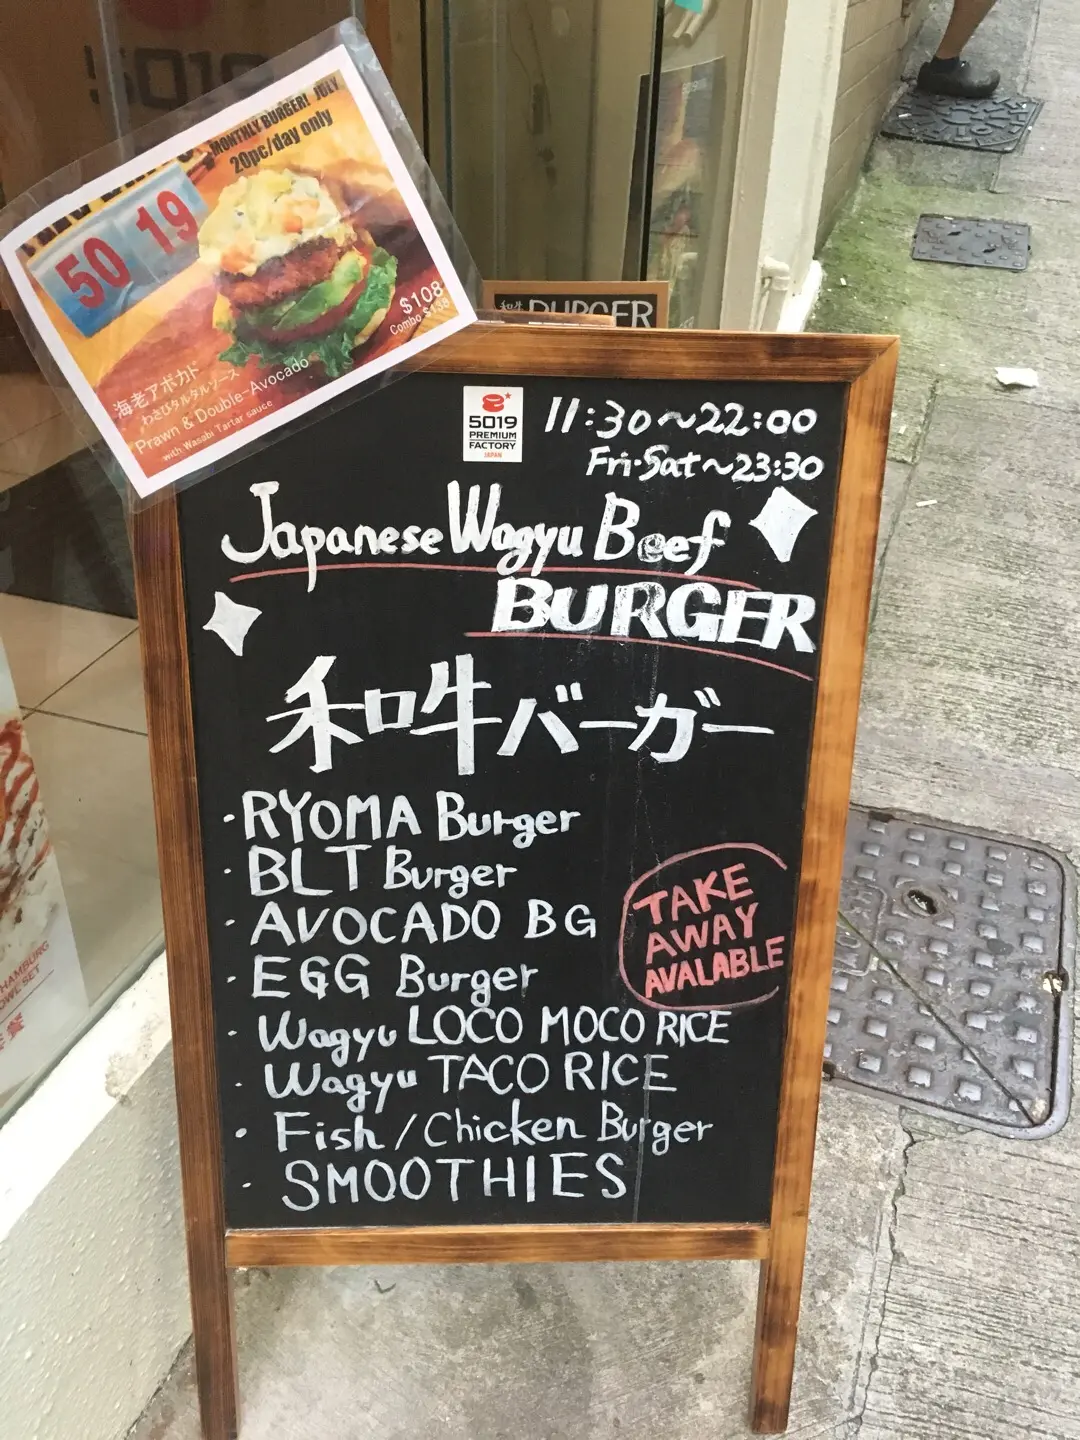 5019
MONTHLY BURGER! JULY
20pc/day only
50 19
$108
Combo $138
海老アボカド
わさびタルタルソース
Prawn & Double-Avocado
with Wasabi Tartar sauce
和牛 BURGER
5019
PREMIUM
FACTORY
JAPAN
11:30~22:00
Fri·Sat~23:30
Japanese Wagyu Beef
BURGER
和牛バーガー
・RYOMA Burger
・BLT Burger
・AVOCADO BG
・EGG Burger
・Wagyu LOCO MOCO RICE
・Wagyu TACO RICE
・Fish / Chicken Burger
・SMOOTHIES
TAKE
AWAY
AVALABLE
HAMBURG
SET